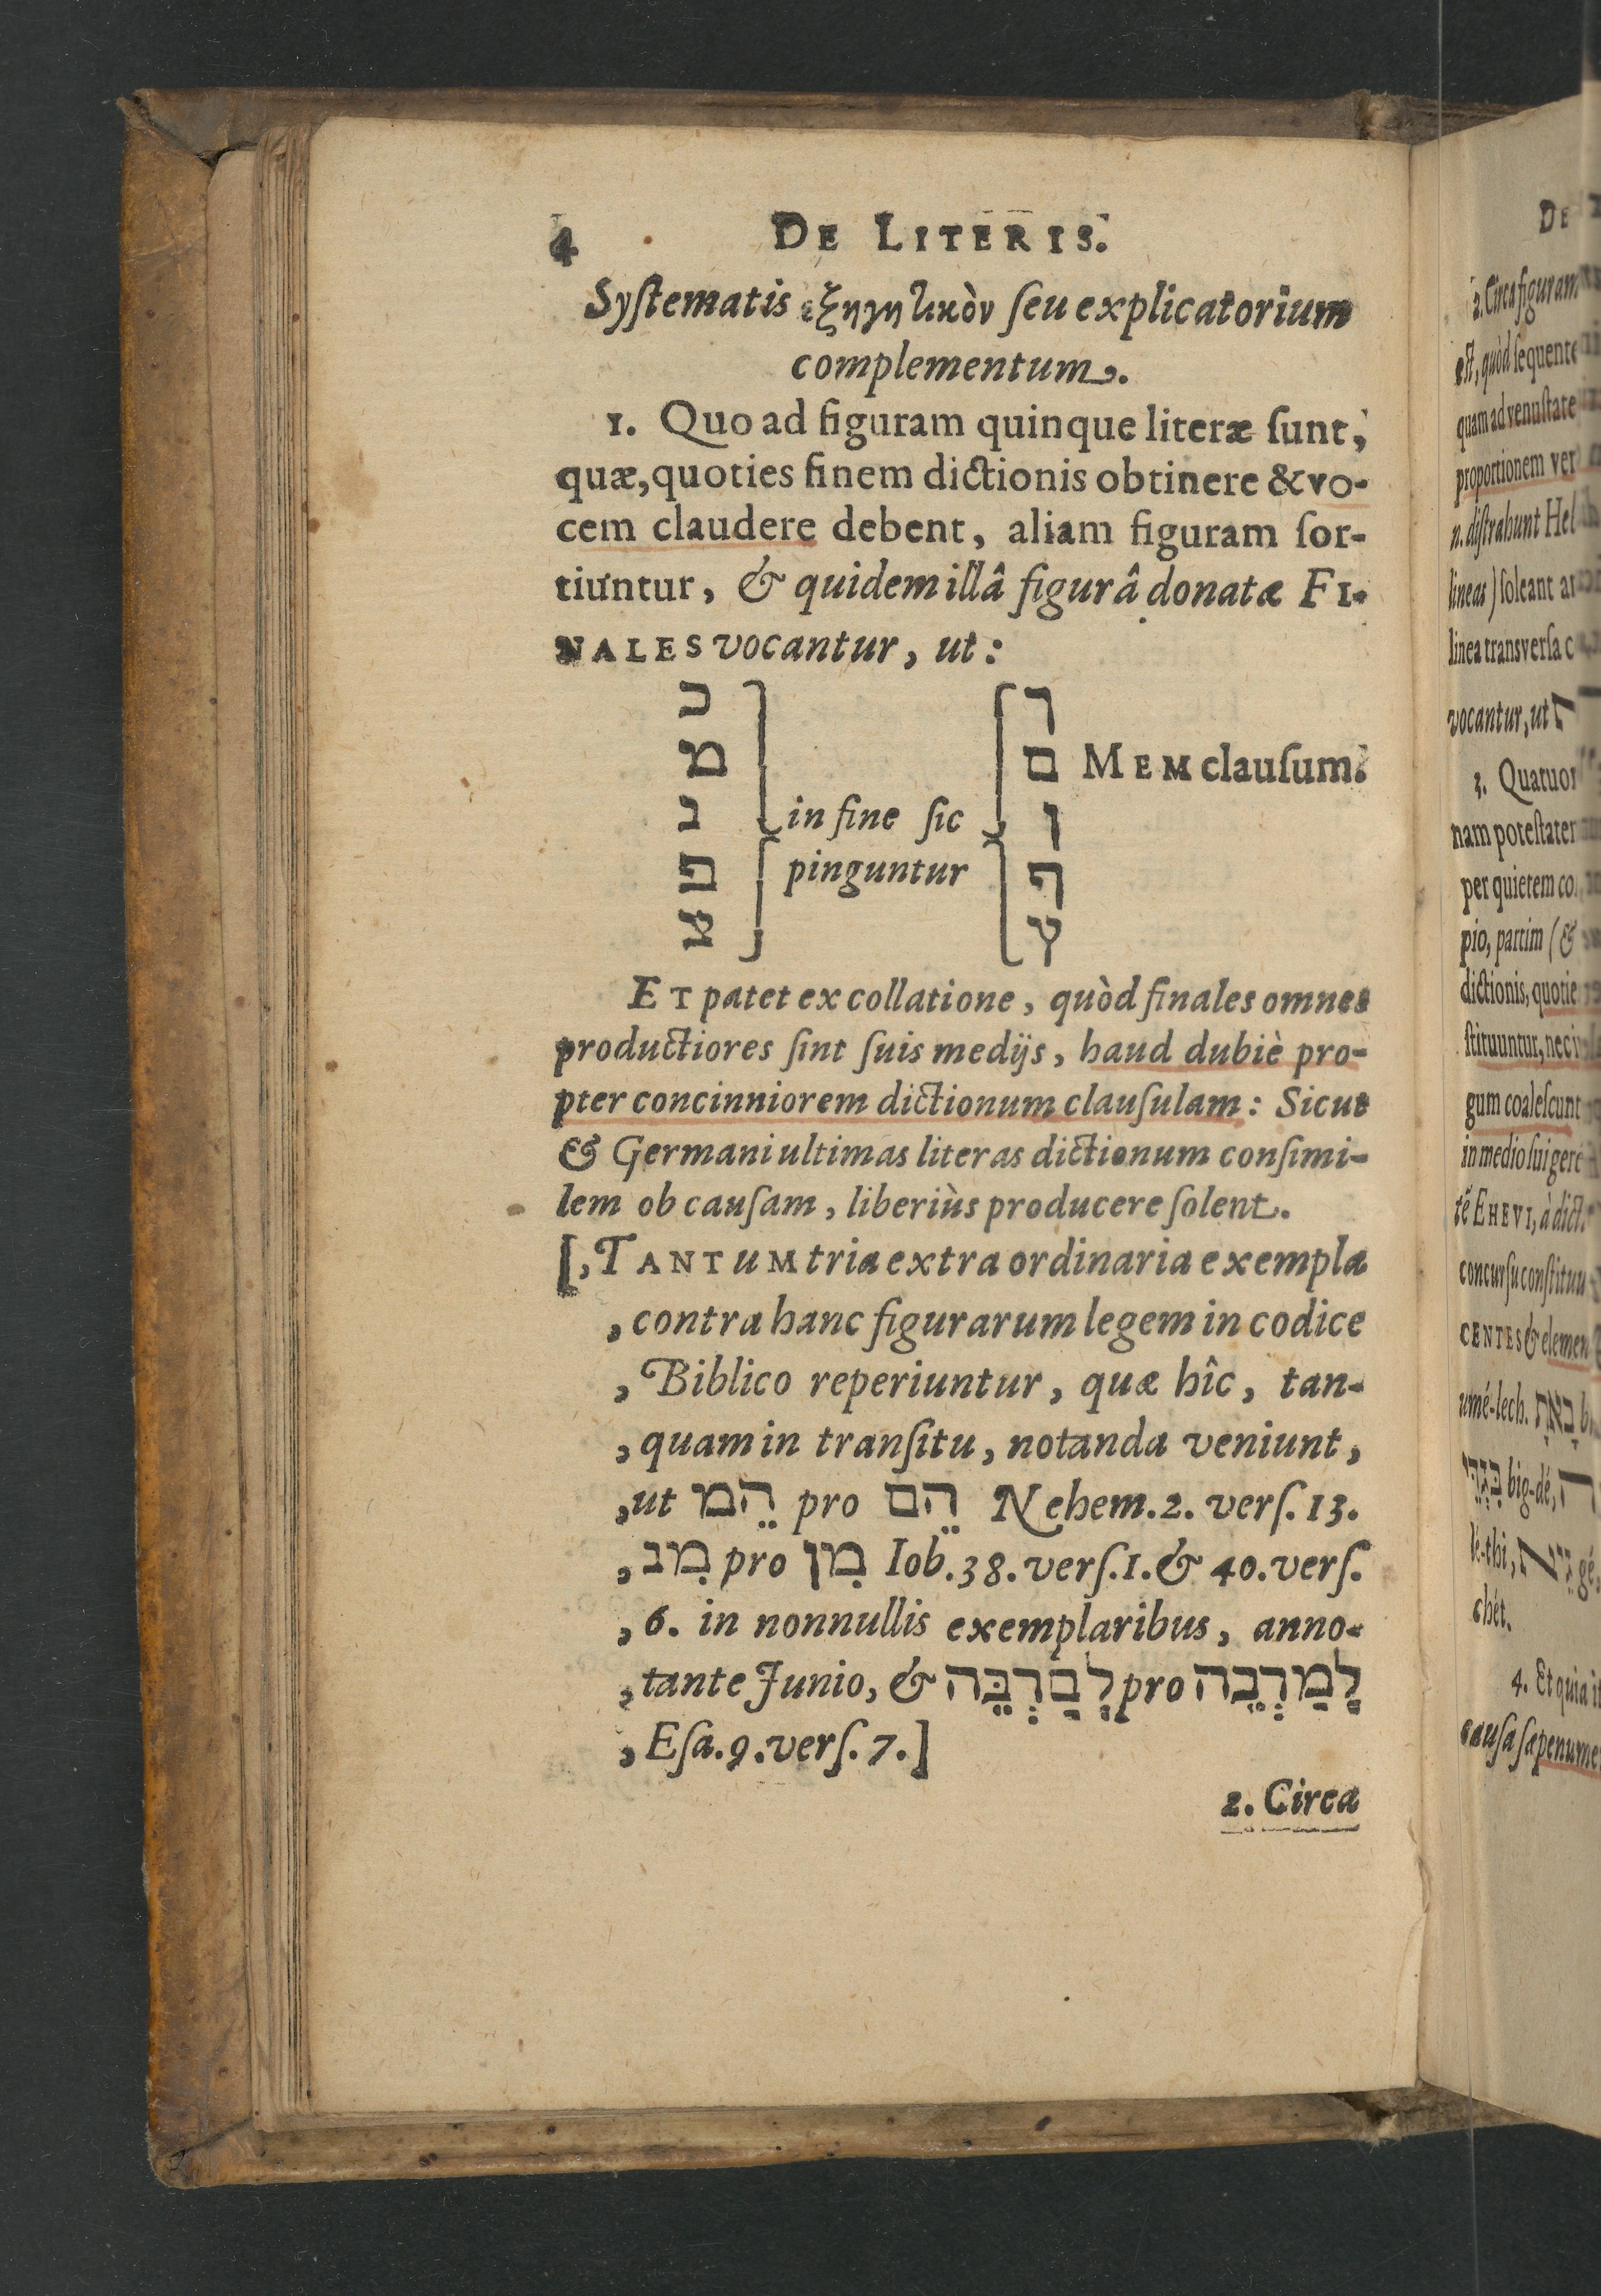 4 DE LITERIS.
Syſtematis ἐξηγητικὸν ſeu explicatorium
complementum.
1. Quo ad figuram quinque literæ ſunt,
quæ, quoties finem dictionis obtinere & vo-
cem claudere debent, aliam figuram ſor-
tiuntur, & quidem illâ figurâ donatæ FI-
NALES vocantur, ut:
כ ך
מ ם MEM clauſum.
נ in fine ſic ן
פ pinguntur ף
צ ץ
ET patet ex collatione, quòd finales omnes
productiores ſint ſuis medijs, haud dubiè pro-
pter concinniorem dictionum clauſulam: Sicut
& Germani ultimas literas dictionum conſimi-
lem ob cauſam, liberiùs producere ſolent.
[, TANTUM tria extra ordinaria exempla
, contra hanc figurarum legem in codice
, Biblico reperiuntur, quæ hîc, tan-
, quam in tranſitu, notanda veniunt,
, ut הֵמ pro הֵם Nehem. 2. verſ. 13.
, מִנ pro מִן Iob. 38. verſ. 1. & 40. verſ.
, 6. in nonnullis exemplaribus, anno-
, tante Junio, & לְםַרְבֵּה pro לְמַרְבֵה
, Eſa. 9. verſ. 7.]
2. Circa
DE
2. Circa figuram
eſt, quòd ſequente
quam ad venuſtate
proportionem ver
n. diſtrahunt
lineas) ſoleant
linea transverſa c
vocantur, ut
3. Quatuor
nam poteſtatem
per quietem
pio, partim (&
dictionis, quotie
ſtituuntur, nec
gum coaleſcunt
in medio ſui
EHEVI, à dict
concurſu conſtituu
CENTES & elemen
umé-lech.
big-dé,
lé-thi,
chét.
4. Et quia
cauſa ſæpenume